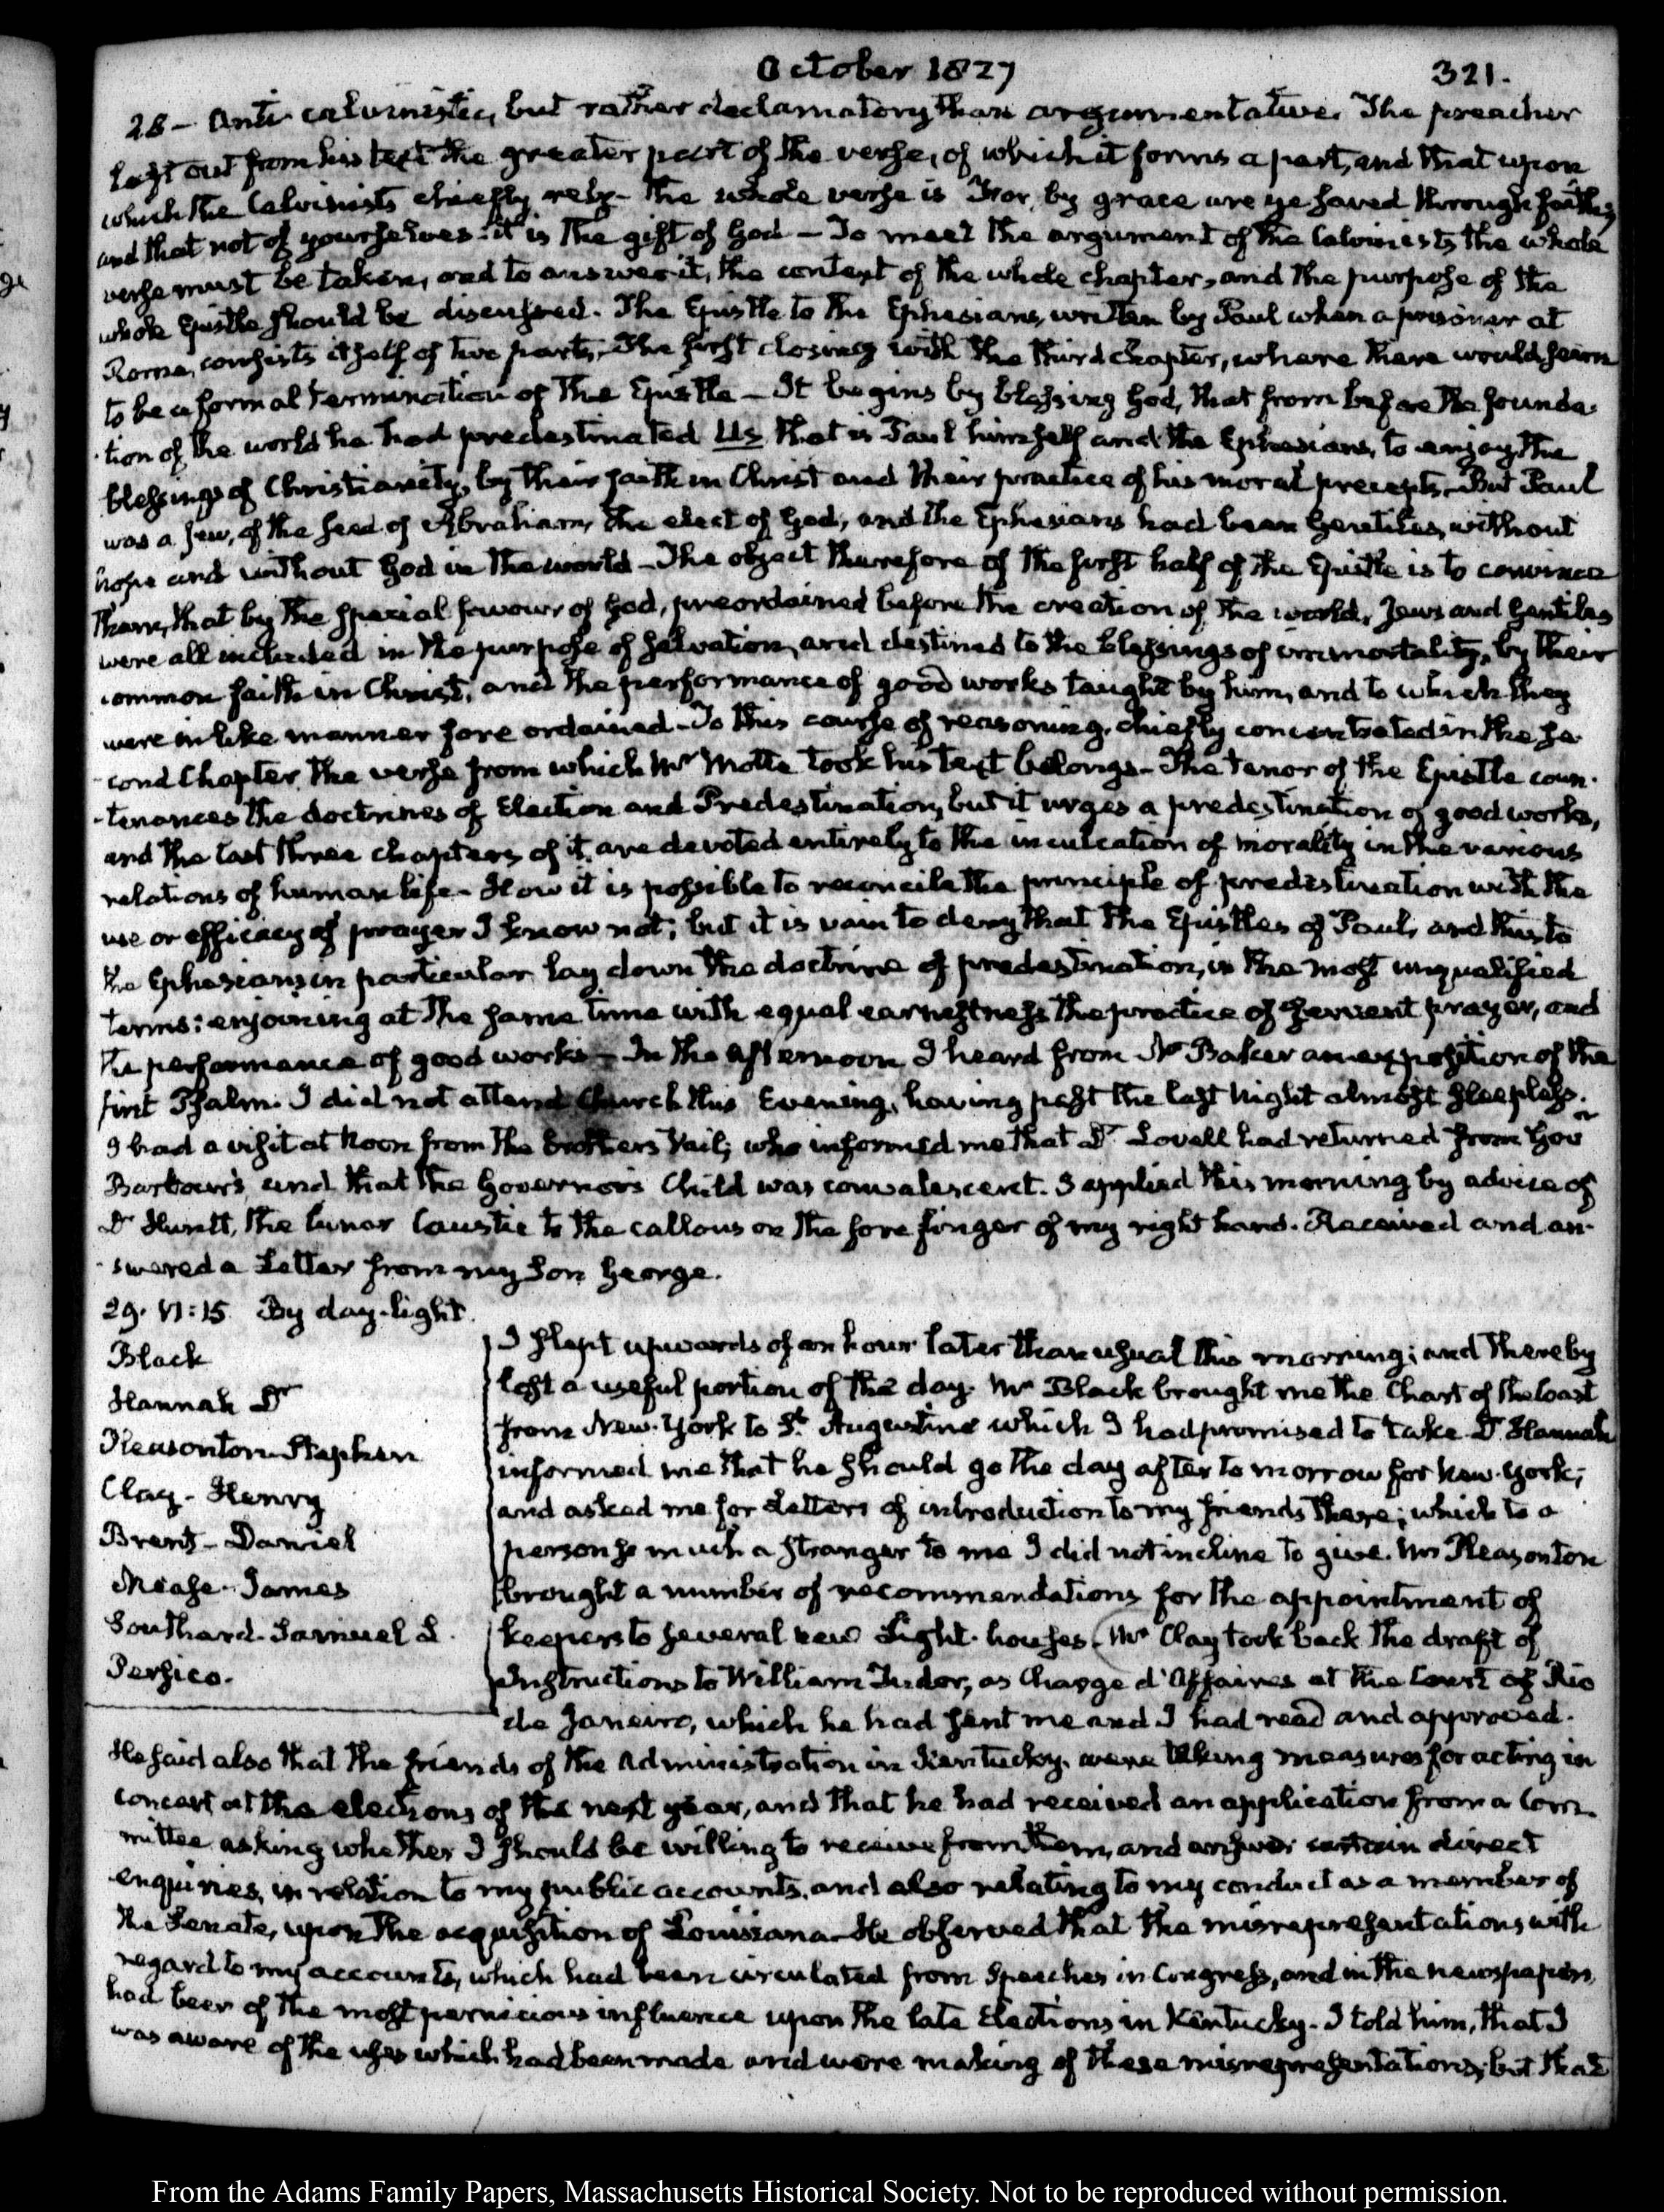 October 1827 321.
28 - Anti calvinistic, but rather declamatory than argumentative. The preacher
left out from his text the greater part of the verse, of which it forms a part, and that upon
which the Calvinists chiefly rely - The whole verse is "For, by grace are ye saved through faith;
and that not of yourselves: it is the gift of God - To meet the argument of the Calvinists the whole
verse must be taken, and to answer it, the context of the whole chapter, and the purpose of the
whole Epistle should be discussed. The Epistle to the Ephesians, written by Paul when a prisoner at
Rome, consists itself of two parts, The first closing with the third chapter, where there would seem
to be a formal termination of the Epistle - It begins by blessing God, that from before the founda-
-tion of the world he had predestinated Us that is Paul himself and the Ephesians, to enjoy the
blessings of Christianity, by their faith in Christ and their practice of his moral precepts. But Paul
was a Jew, of the seed of Abraham, the elect of God, and the Ephesians had been Gentiles, without
hope and without God in the world - The object therefore of the first half of the Epistle is to convince
them, that by the special favour of God, preordained before the creation of the world, Jews and Gentiles
were all included in the purpose of salvation, and destined to the blessings of immortality, by their
common faith in Christ, and the performance of good works taught by him, and to which they
were in like manner fore ordained - To this course of reasoning, chiefly concentrated in the se-
-cond Chapter, the verse from which Mr Motte took his text belongs - The tenor of the Epistle coun-
-tenances the doctrines of Election and Predestination, but it urges a predestination of good works,
and the last three chapters of it, are devoted entirely to the inculcation of morality in the various
relations of human life - How it is possible to reconcile the principle of predestination with the
use or efficacy of prayer I know not; but it is vain to deny that the Epistles of Paul, and this to
the Ephesians in particular lay down the doctrine of predestination, in the most unqualified
terms: enjoining at the same time with equal earnestness the practice of fervent prayer, and
the performance of good works - In the afternoon I heard from Mr Baker an exposition of the
first Psalm. I did not attend Church this Evening, having past the last night almost sleepless.
I had a visit at Noon from the brothers Vail; who informed me that Dr Lovell had returned from Govr
Barbour's and that the Governor's Child was convalescent. I applied this morning by advice of
Dr Huntt, the lunar Caustic to the callous on the fore finger of my right hand. Received and an-
-swered a Letter from my Son George.
29. VI:15 By day-light.
Black
Hannah Dr
Pleasonton Stephen
Clay - Henry
Brent - Daniel
Mease - James
Southard - Samuel L.
Persico.
I slept upwards of an hour later than usual this morning; and thereby
lost a useful portion of the day. Mr Black brought me the Chart of the Coast
from New-York to St. Augustine which I had promised to take. Dr Hannah
informed me that he should go the day after to morrow for New-York;
and asked me for Letters of introduction to my friends there; which to a
person so much a stranger to me I did not incline to give. Mr Pleasonton
brought a number of recommendations for the appointment of
keepers to several new Light-houses. Mr Clay took back the draft of
Instructions to William Tudor, as Chargé d'Affaires at the Court of Rio
de Janeiro, which he had sent me and I had read and approved.
He said also that the friends of the Administration in Kentucky, were taking measures for acting in
concert at the elections of the next year, and that he had received an application from a Com-
mittee asking whether I should be willing to receive from them, and answer certain direct
enquiries, in relation to my public accounts, and also relating to my conduct as a member of
the Senate, upon the acquisition of Louisiana - He observed that the misrepresentations with
regard to my accounts, which had been circulated from Speeches in Congress, and in the newspapers,
had been of the most pernicious influence upon the late Elections in Kentucky - I told him, that I
was aware of the uses which had been made and were making of these misrepresentations; but that
From the Adams Family Papers, Massachusetts Historical Society. Not to be reproduced without permission.